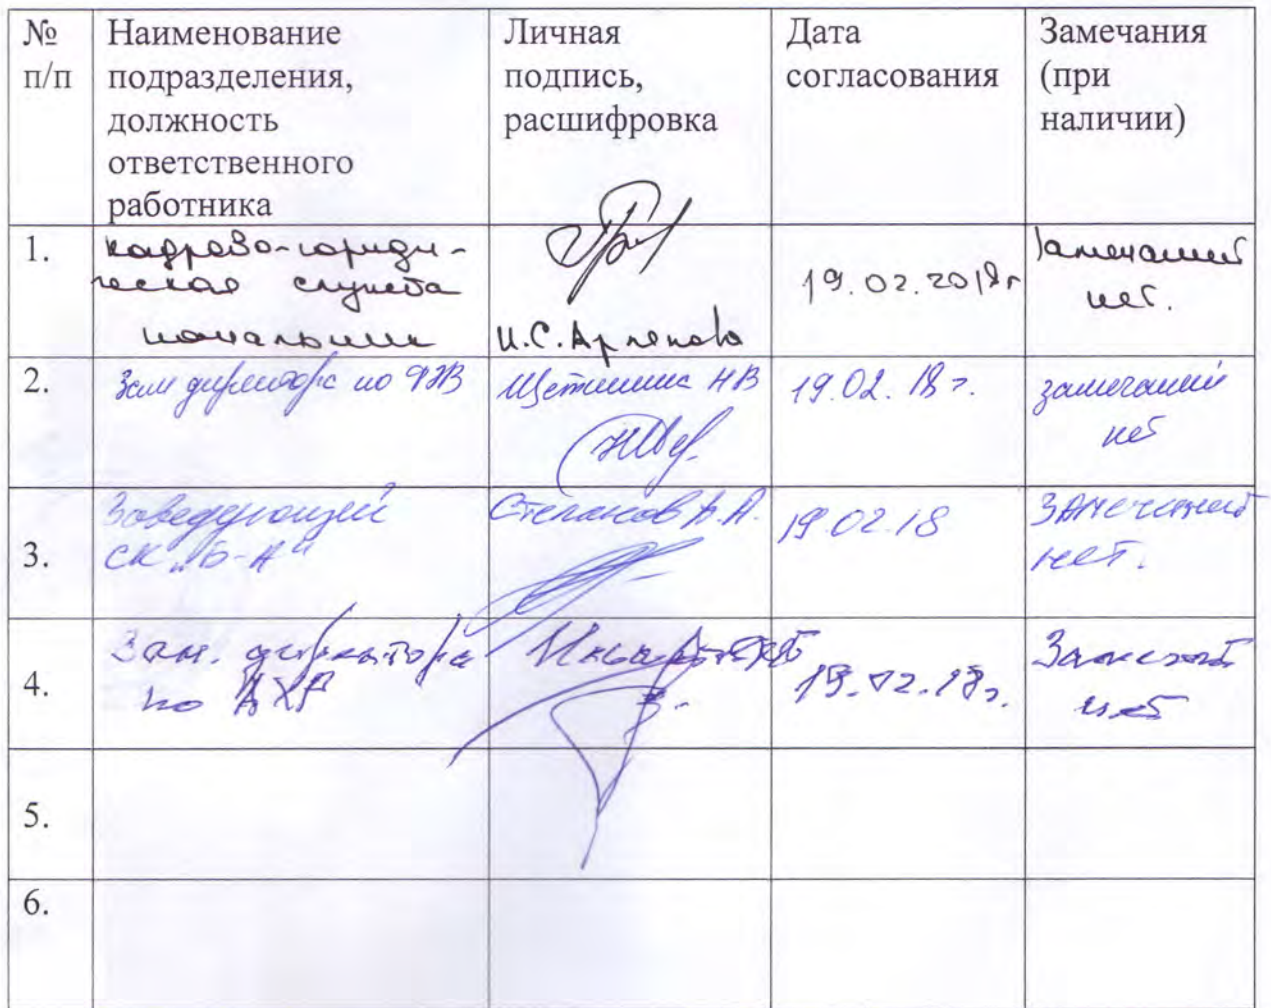 №
п/п
Наименование
подразделения,
должность
ответственного
работника
Личная
подпись,
расшифровка
Дата
согласования
Замечания
(при
наличии)
1.
кадрово-юриди-
ческая служба
начальник
И.С.
19.02.2018г
Замечаний
нет.
2.
Зам директора по ФЭВ
Щетинина НВ
19.02.18 г.
замечаний
нет
3.
Заведующий
СК „Б-А“
Степанов А.А.
19.02.18
Замечаний
нет.
4.
Зам. директора
по АХР
19.02.18г.
Замечаний
нет
5.
6.